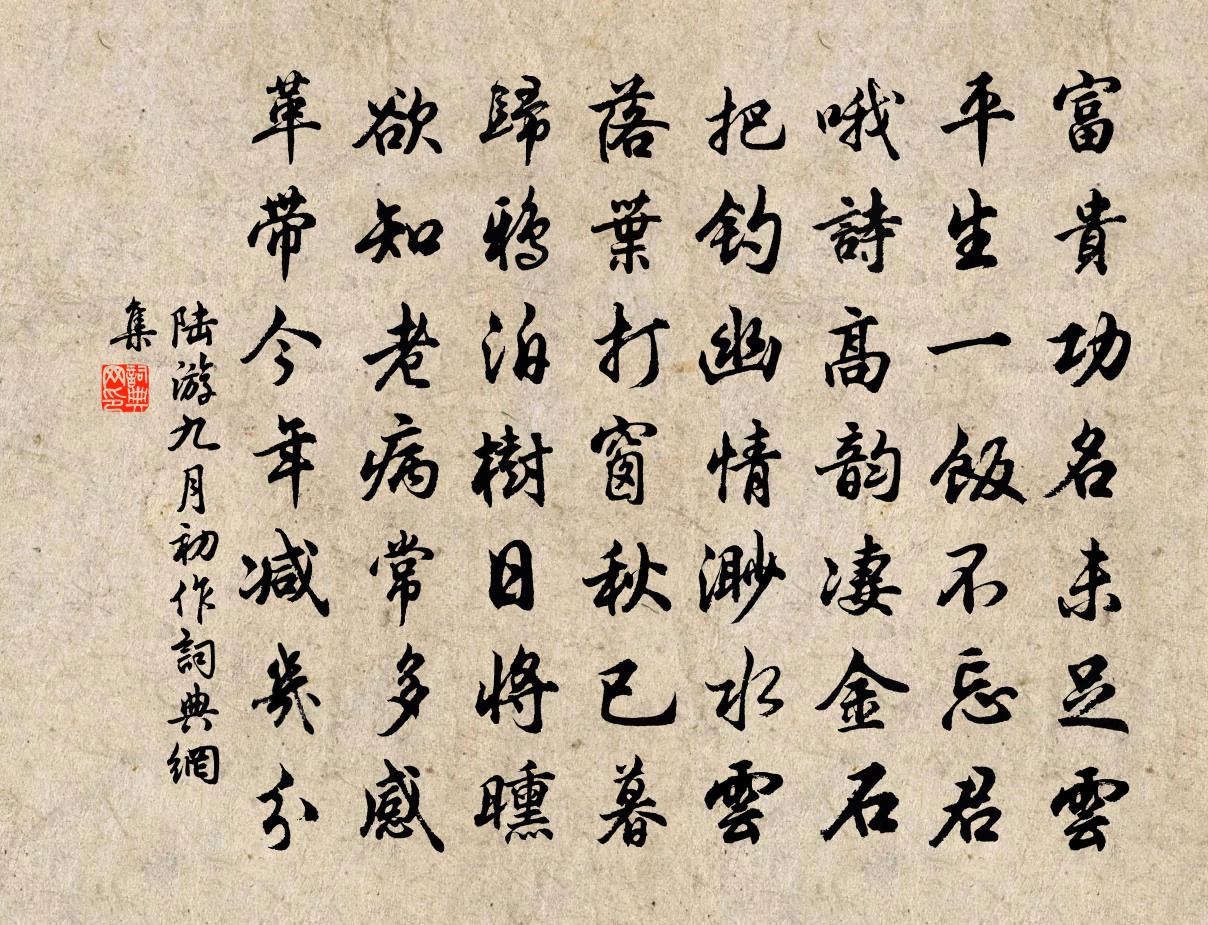 富貴功名未足雲
平生一飯不忘君
哦詩高韵凄金石
把釣幽情渺水雲
落葉打窗秋已暮
歸鴉泊樹日將曛
欲知老病常多感
革帶今年減幾分
陆游九月初作詞典網
集
詞典
网印